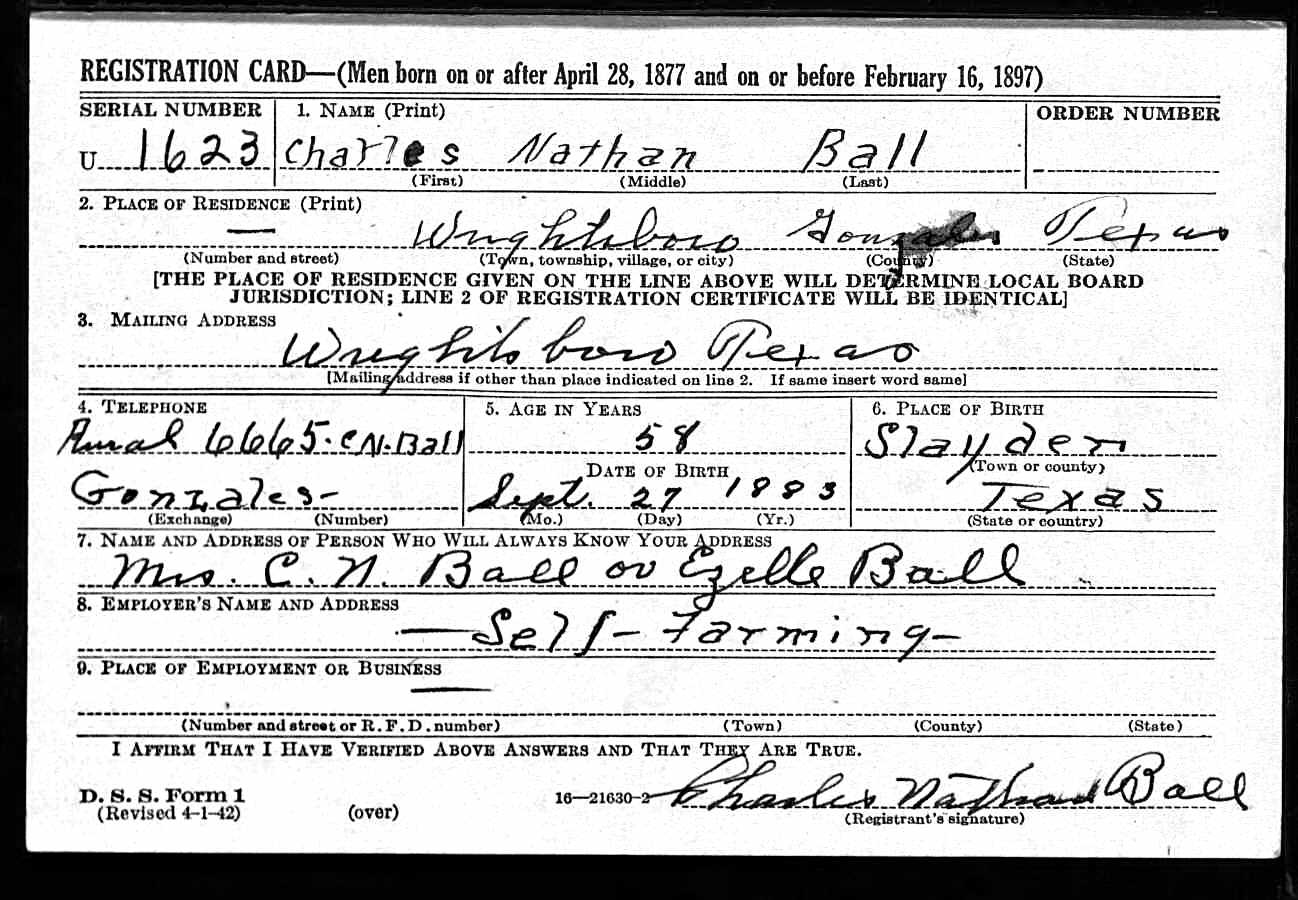 REGISTRATION CARD—(Men born on or after April 28, 1877 and on or before February 16, 1897)
SERIAL NUMBER 1. NAME (Print) ORDER NUMBER
U 1623 Charles Nathan Ball
(First) (Middle) (Last)
2. PLACE OF RESIDENCE (Print)
— Wrightsboro Gonzales Texas
(Number and street) (Town, township, village, or city) (County) (State)
[THE PLACE OF RESIDENCE GIVEN ON THE LINE ABOVE WILL DETERMINE LOCAL BOARD
JURISDICTION; LINE 2 OF REGISTRATION CERTIFICATE WILL BE IDENTICAL]
3. MAILING ADDRESS
Wrightsboro Texas
[Mailing address if other than place indicated on line 2. If same insert word same]
4. TELEPHONE 5. AGE IN YEARS 6. PLACE OF BIRTH
Rural 6665-C.N.Ball 58 Slayden
DATE OF BIRTH (Town or county)
Gonzales- Sept. 27 1883 Texas
(Exchange) (Number) (Mo.) (Day) (Yr.) (State or country)
7. NAME AND ADDRESS OF PERSON WHO WILL ALWAYS KNOW YOUR ADDRESS
Mrs. C. N. Ball or Ezelle Ball
8. EMPLOYER'S NAME AND ADDRESS
—Self-Farming-
9. PLACE OF EMPLOYMENT OR BUSINESS
—
(Number and street or R.F.D. number) (Town) (County) (State)
I AFFIRM THAT I HAVE VERIFIED ABOVE ANSWERS AND THAT THEY ARE TRUE.
D. S. S. Form 1 16—21630-2 Charles Nathan Ball
(Revised 4-1-42) (over) (Registrant's signature)